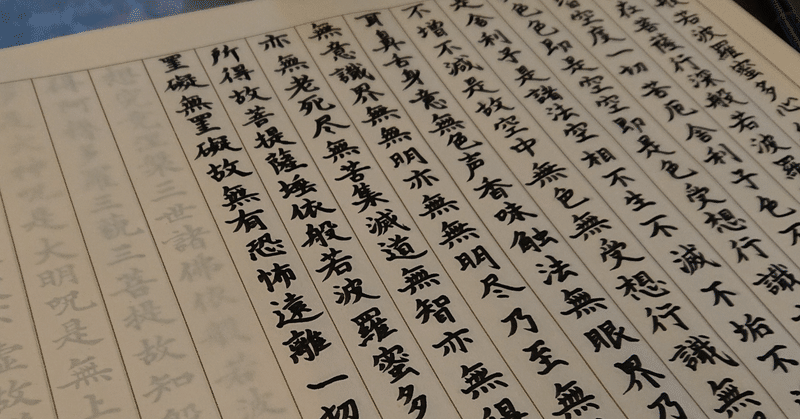 般若波羅蜜多心
在菩薩行深般若波羅
皆空度一切苦厄舎利子色不
色色即是空空即是色受想行識
是舎利子是諸法空相不生不滅不垢不
不増不減是故空中無色無受想行識無
耳鼻舌身意無色声香味触法無眼界乃
無意識界無無明亦無無明尽乃至無
亦無老死尽無苦集滅道無智亦無得
所得故菩提薩埵依般若波羅蜜多
罣礙無罣礙故無有恐怖遠離一切
竟三世諸佛依般若波
三藐三菩提故知般
是大明呪是無上
虚故